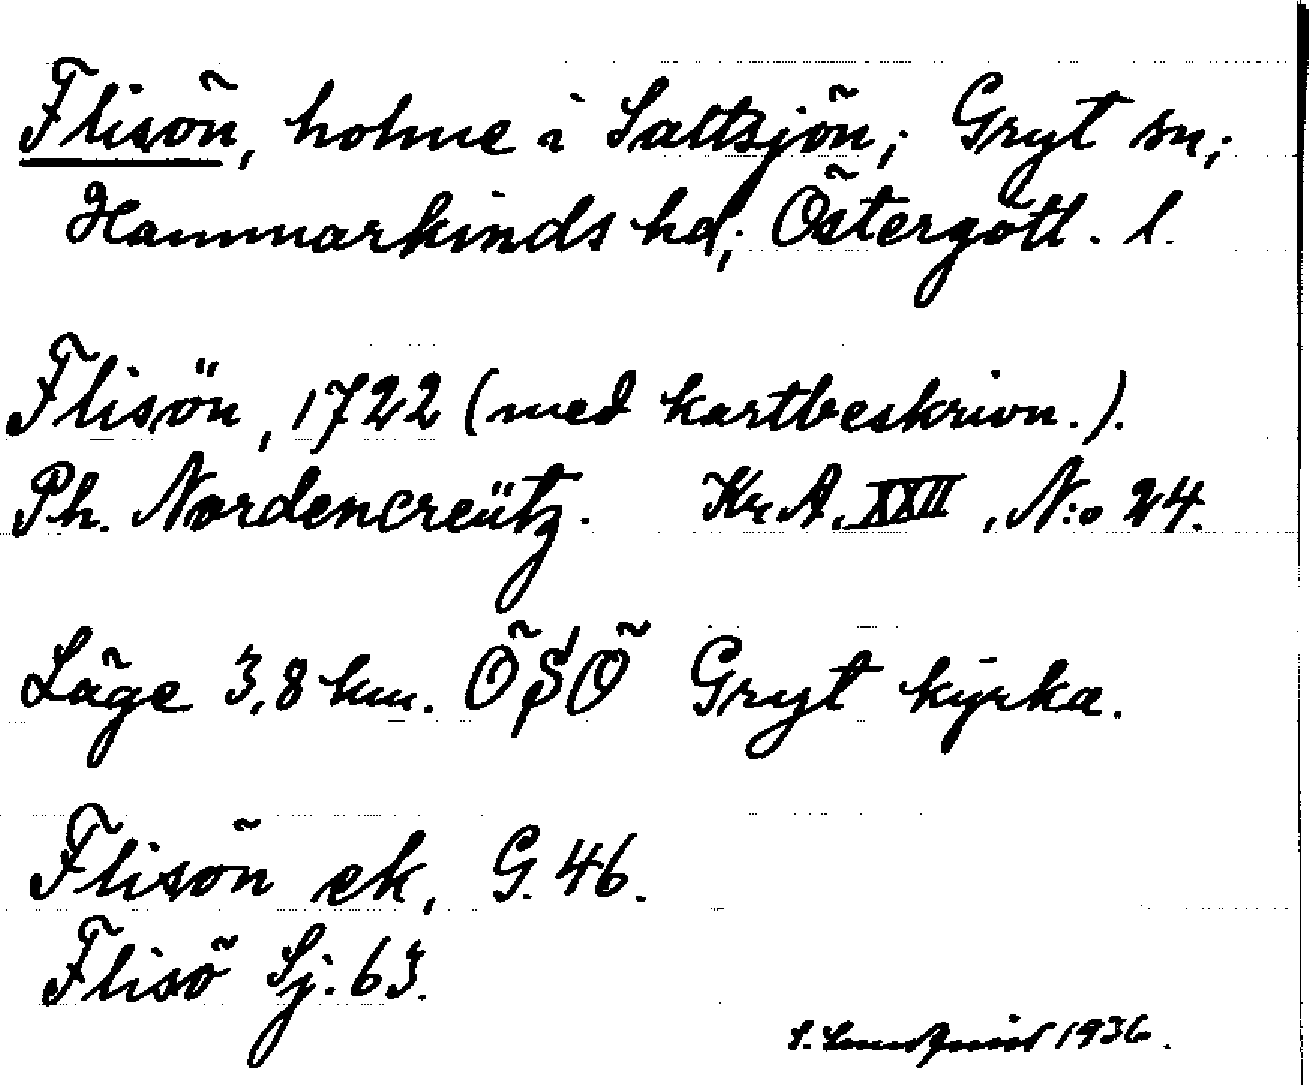 Flisön, holme i Saltsjön; Gryt sn;
Hammarkinds hd; Östergötl. l.
Flisön, 1722 (med kartbeskrivn.).
Ph. Nordencreütz. Kr. A. XXII, N:o 24.
Läge 3,8 km. ÖSÖ Gryt kyrka.
Flisön ek, G. 46.
Flisö Sj. 63.
S. 1936.